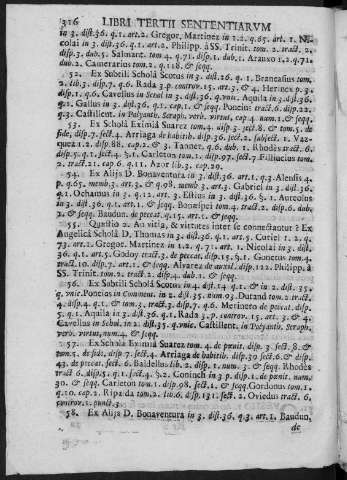 316 LIBRI TERTII SENTENTIARVM
in 3. dist.36. q.1. art.2. Gregor. Martinez in 1.2. q.65. art. 1. Ni-
colai in 3. dist.36. q.1. art.2. Philipp. à SS. Trinit. tom.2. tract. 2.
disp.3. dub.5. Salmant. tom.4. q.71. disp.1. dub.1. Arauxo 1.2. q.71.
dub.2. Camerarius tom.2. q.118. & seqq.
52. Ex Subtili Scholâ Scotus in 3. dist.36. q.1. Brancasius tom.
2. lib.3. disp.7. q.6. Rada 3.p. controv.15. art.3. & 4. Herincx p.3.
disp.1. q.6. Cavellus in Schol in 3. dist.36. q.vnic. Aquila in 3. dist.36.
q.1. Gallus in 3. dist.36. q.1. cap.1. & seqq. Poncius tract.6. disp.22.
q.3. Castillent. in Polyantis. Seraph. verb. virtus, cap.4. num.1. & seqq.
53. Ex Scholâ Eximiâ Suarez tom.4. disp.3. sect.8. & tom.5. de
fide, disp.7. sect.4. Arriaga de habitib. disp.36. sect.2. subsect. 1. Vaz-
quez 1.2. disp.88. cap.2. & 3. Tanner. q.6. dub. 1. Rhodés tract.6.
disp.5. q.1. sect.4. §.1. Carleton tom.1. disp.97. sect.7. Filliucius tom.
2. tract.21. cap.6. q.11. Azor lib.3. cap.20.
54. Ex Alijs D. Bonaventura in 3. dist.36. art.1. q.3. Alensis 4.
p. q.65. memb.3. art.3. & q.98. memb.3. art.3. Gabriel in 3. dist.36.
q.1. Ochamus in 3. q.12. art.3. Estius in 3. dist.36. §. 1. Aureolus
in 3. dist.36. q.1. art.1. & seqq. Bonespei tom.4. tract.2. disp.6. dub.
2. & seqq. Baudun. de peccat. q.15. art.1. & seqq.
55. Quæstio 2. An vitia, & virtutes inter se connectantur? Ex
Angelicâ Scholâ D. Thomas in 3. dist.36. q.1. art.5. Curiel 1.2. q.
73. art.1. Gregor. Martinez in 1.2. q.71. art.1. Nicolai in 3. dist.
36. q.1. art.5. Godoy tract.3. de peccat. disp.15. §.1. Gonetus tom.4.
tract.10. disp.7. art.1. & seqq. Alvarez de auxil. disp.122. Philipp. à
SS. Trinit. tom.2. tract.2. disp.4. dub.1. & seqq.
56. Ex Subtili Scholâ Scotus in 4. dist.14 q.1. & in 2. dist.35.
q.vnic. Poncius in Comment. in 2. dist.35. num.93. Durand tom.2. tract.
disp.4. q.1. & tom.3. tract.3. disp.7. q.6. Merinero de peccat. disp.1.
5. q.1. Aquila in 3. dist.36. q.1. Rada 3.p. controv.15. art.3. & 4.
Cavellus in Schol. in 2. dist.35. q.vnic. Castillent. in Polyantis. Seraph.
verb. virtus, num.4. & seqq.
57. Ex Scholâ Eximiâ Suarez tom.2. de pœnit. disp.3. sect.8. &
tom.5. de fide, disp.7. sect.4. Arriaga de habitib. disp.30. sect.6. & disp.
43. de peccat. sect.6. Baldellus lib.2. disp.1. num.3. & seqq. Rhodés
tract.6. disp.5. q.1. sect.4. §.2. Coninch in 3.p. disp.2. sect.1. num.
30. & seqq. Carleton tom.1. disp.98. sect.1. & seqq. Gordonus tom.1.
q.10. cap.2. Ripalda tom.2. lib.6. disp.131. sect.2. Oviedus tract.6.
controv.1. punct.3.
58. Ex Alijs D. Bonaventura in 3. dist.36. q.3. art.1. Baudun,
de